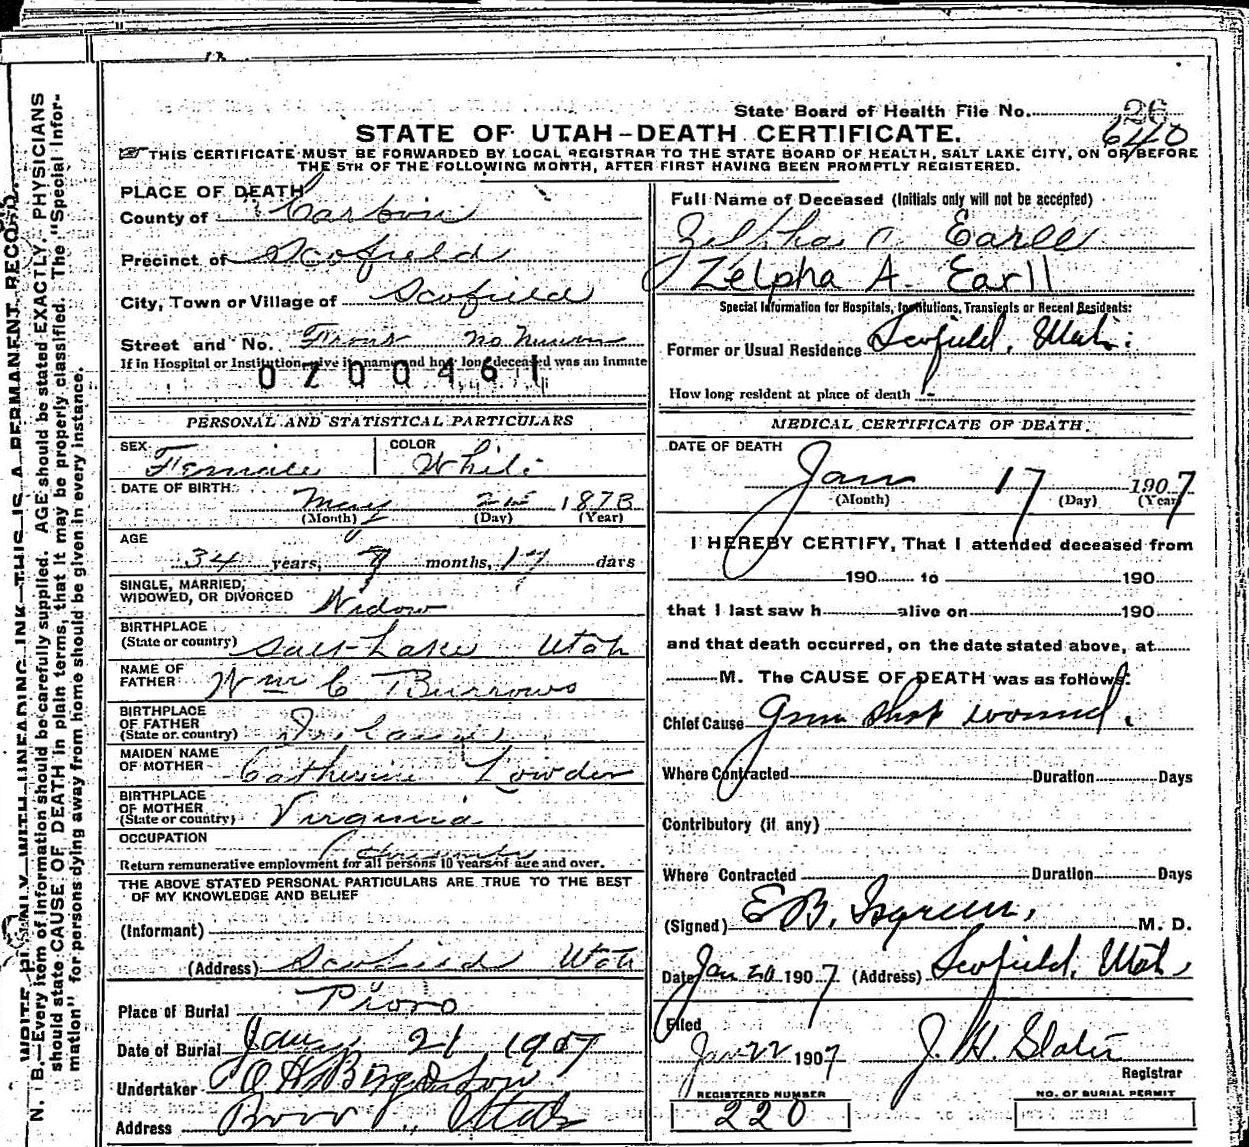 State Board of Health File No. 26
640
STATE OF UTAH–DEATH CERTIFICATE.
☞ THIS CERTIFICATE MUST BE FORWARDED BY LOCAL REGISTRAR TO THE STATE BOARD OF HEALTH, SALT LAKE CITY, ON OR BEFORE
THE 5TH OF THE FOLLOWING MONTH, AFTER FIRST HAVING BEEN PROMPTLY REGISTERED.
PLACE OF DEATH
County of Carbon
Precinct of Scofield
City, Town or Village of Scofield
Street and No. Front no
If in Hospital or Institution, give its name and how long deceased was an inmate
0700461
PERSONAL AND STATISTICAL PARTICULARS
SEX Female COLOR White
DATE OF BIRTH: May 1873
(Month) (Day) (Year)
AGE
34 years, 7 months, 17 days
SINGLE, MARRIED,
WIDOWED, OR DIVORCED Widow
BIRTHPLACE
(State or country) Salt Lake Utah
NAME OF
FATHER Wm C Burrows
BIRTHPLACE
OF FATHER
(State or country) Ireland
MAIDEN NAME
OF MOTHER Catherine Lowder
BIRTHPLACE
OF MOTHER
(State or country) Virginia
OCCUPATION
Return remunerative employment for all persons 10 years of age and over.
THE ABOVE STATED PERSONAL PARTICULARS ARE TRUE TO THE BEST
OF MY KNOWLEDGE AND BELIEF
(Informant)
(Address) Scofield Utah
Place of Burial Provo
Date of Burial Jany 21 1907
Undertaker O H Berg & Son
Address Provo, Utah
Full Name of Deceased (Initials only will not be accepted)
Zelpha A. Earll
Zelpha A. Earll
Special Information for Hospitals, Institutions, Transients or Recent Residents:
Former or Usual Residence Scofield, Utah.
How long resident at place of death
MEDICAL CERTIFICATE OF DEATH.
DATE OF DEATH
Jan 17 1907
(Month) (Day) (Year)
I HEREBY CERTIFY, That I attended deceased from
190 to 190
that I last saw h alive on 190
and that death occurred, on the date stated above, at
M. The CAUSE OF DEATH was as follows:
Chief Cause Gun shot wound.
Where Contracted Duration Days
Contributory (if any)
Where Contracted Duration Days
(Signed) E.B. Isgreen, M. D.
Date Jan 20 1907 (Address) Scofield, Utah
Filed
Jan 22 1907 J. H. Slater
Registrar
REGISTERED NUMBER
220
NO. OF BURIAL PERMIT
WRITE PLAINLY WITH UNFADING INK—THIS IS A PERMANENT RECORD.
N. B.—Every item of information should be carefully supplied. AGE should be stated EXACTLY. PHYSICIANS
should state CAUSE OF DEATH in plain terms, that it may be properly classified. The "Special Infor-
mation" for persons dying away from home should be given in every instance.